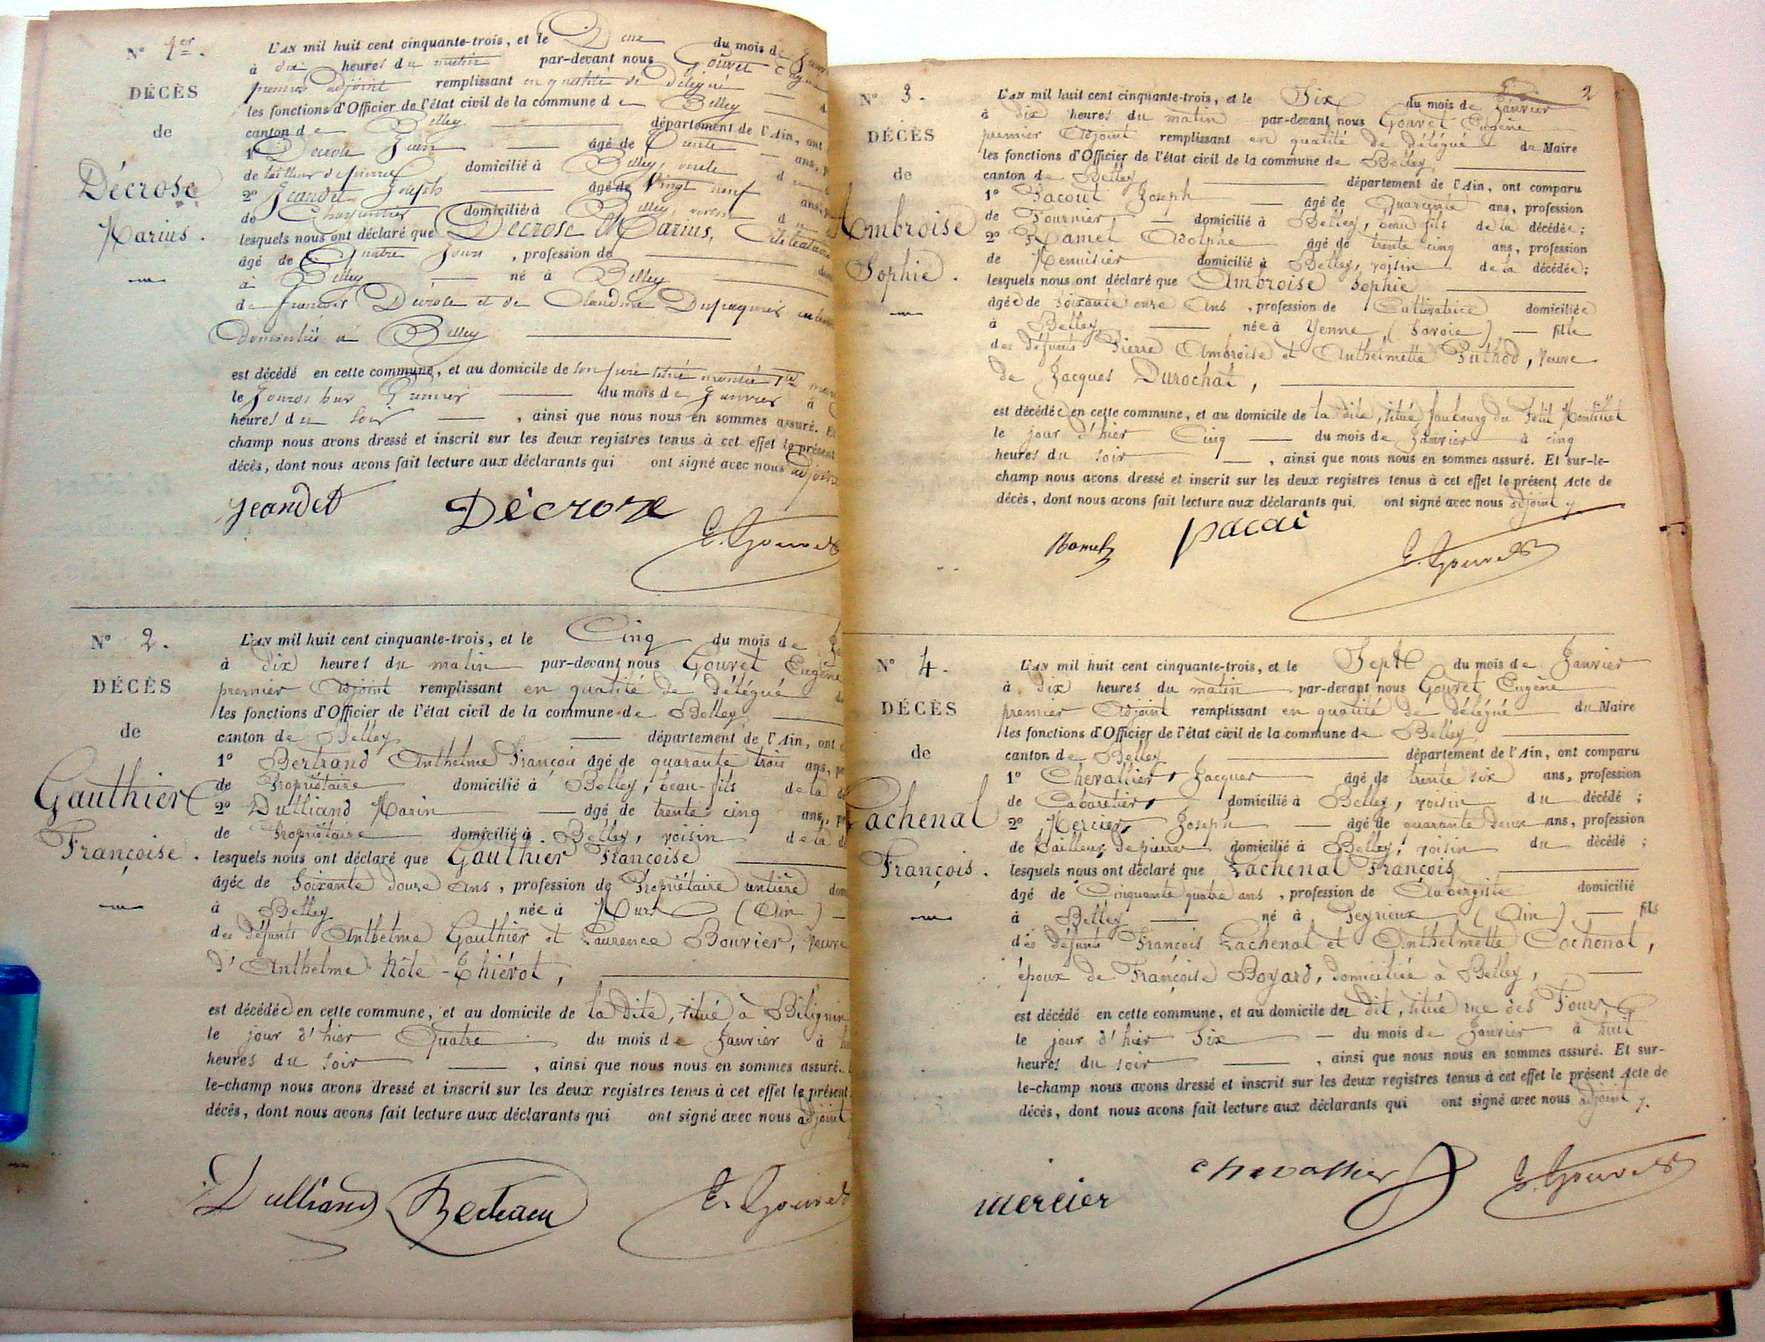 N° 1er.
DÉCÈS
de
Décrose
Marius.
L'AN mil huit cent cinquante-trois, et le Deux du mois de
à dix heures du matin par-devant nous Gouvet Eugène
premier adjoint remplissant en qualité de délégué
les fonctions d'Officier de l'état civil de la commune de Belley
canton de Belley département de l'Ain, ont
1° Décrose âgé de trente ans,
de tailleur de pierres domicilié à Belley, oncle
2° Jeandet Joseph âgé de Vingt neuf ans,
de Charpentier domicilié à Belley, voisin
lesquels nous ont déclaré que Décrose Marius,
âgé de Quatre Jours, profession de
à Belley né à Belley
de François Décrose et de Claudine
Domiciliés à Belley
est décédé en cette commune, et au domicile de son père
le Jour d'hier Premier du mois de Janvier à
heures du soir, ainsi que nous nous en sommes assuré. Et
champ nous avons dressé et inscrit sur les deux registres tenus à cet effet le présent
décès, dont nous avons fait lecture aux déclarants qui ont signé avec nous adjoint
Jeandet Décroze E. Gouvet
N° 2.
DÉCÈS
de
Gauthier
Françoise.
L'AN mil huit cent cinquante-trois, et le Cinq du mois de
à dix heures du matin par-devant nous Gouvet Eugène
premier Adjoint remplissant en qualité de délégué
les fonctions d'Officier de l'état civil de la commune de Belley
canton de Belley département de l'Ain, ont
1° Bertrand Anthelme François âgé de quarante trois ans,
de Propriétaire domicilié à Belley, beau-fils de la
2° Dulliand Marin âgé de trente cinq ans,
de Propriétaire domicilié à Belley, voisin de la
lesquels nous ont déclaré que Gauthier Françoise
âgée de Soixante douze ans, profession de Propriétaire rentière
à Belley née à (Ain)
des défunts Anthelme Gauthier et Laurence Bouvier, veuve
d'Anthelme
est décédée en cette commune, et au domicile de la dite, situé à Billignin
le jour d'hier Quatre du mois de Janvier à
heures du soir, ainsi que nous nous en sommes assuré.
le-champ nous avons dressé et inscrit sur les deux registres tenus à cet effet le présent
décès, dont nous avons fait lecture aux déclarants qui ont signé avec nous adjoint
Dulliand E. Gouvet
2
N° 3.
DÉCÈS
de
Ambroise
Sophie.
L'AN mil huit cent cinquante-trois, et le Six du mois de Janvier
à dix heures du matin par-devant nous Gouvet Eugène
premier Adjoint remplissant en qualité de délégué du Maire
les fonctions d'Officier de l'état civil de la commune de Belley
canton de Belley département de l'Ain, ont comparu
1° Pacout Joseph âgé de Quarante ans, profession
de Fournier domicilié à Belley, beau fils de la décédée;
2° Ramel Adolphe âgé de trente cinq ans, profession
de Menuisier domicilié à Belley, voisin de la décédée;
lesquels nous ont déclaré que Ambroise Sophie
âgée de soixante onze ans, profession de Cultivatrice domiciliée
à Belley née à Yenne (Savoie) fille
des défunts Pierre Ambroise et Anthelmette Puthod, veuve
de Jacques Durochat,
est décédée en cette commune, et au domicile de la dite, situé faubourg du Petit
le jour d'hier Cinq du mois de Janvier à cinq
heures du soir, ainsi que nous nous en sommes assuré. Et sur-le-
champ nous avons dressé et inscrit sur les deux registres tenus à cet effet le présent Acte de
décès, dont nous avons fait lecture aux déclarants qui ont signé avec nous adjoint
Ramel E. Gouvet
N° 4.
DÉCÈS
de
Lachenal
François.
L'AN mil huit cent cinquante-trois, et le Sept du mois de Janvier
à dix heures du matin par-devant nous Gouvet Eugène
premier Adjoint remplissant en qualité de délégué du Maire
les fonctions d'Officier de l'état civil de la commune de Belley
canton de Belley département de l'Ain, ont comparu
1° Chevallier Jacques âgé de trente six ans, profession
de Cabaretier domicilié à Belley, voisin du décédé;
2° Mercier Joseph âgé de quarante deux ans, profession
de Tailleur de pierres domicilié à Belley, voisin du décédé;
lesquels nous ont déclaré que Lachenal François
âgé de Cinquante quatre ans, profession de Aubergiste domicilié
à Belley né à Peyrieux (Ain) fils
des défunts François Lachenal et Anthelmette Cochonat,
époux de Françoise Boyard, domiciliée à Belley,
est décédé en cette commune, et au domicile du dit, situé rue des Fours
le jour d'hier Six du mois de Janvier à huit
heures du soir, ainsi que nous nous en sommes assuré. Et sur-
le-champ nous avons dressé et inscrit sur les deux registres tenus à cet effet le présent Acte de
décès, dont nous avons fait lecture aux déclarants qui ont signé avec nous adjoint
mercier chevallier E. Gouvet